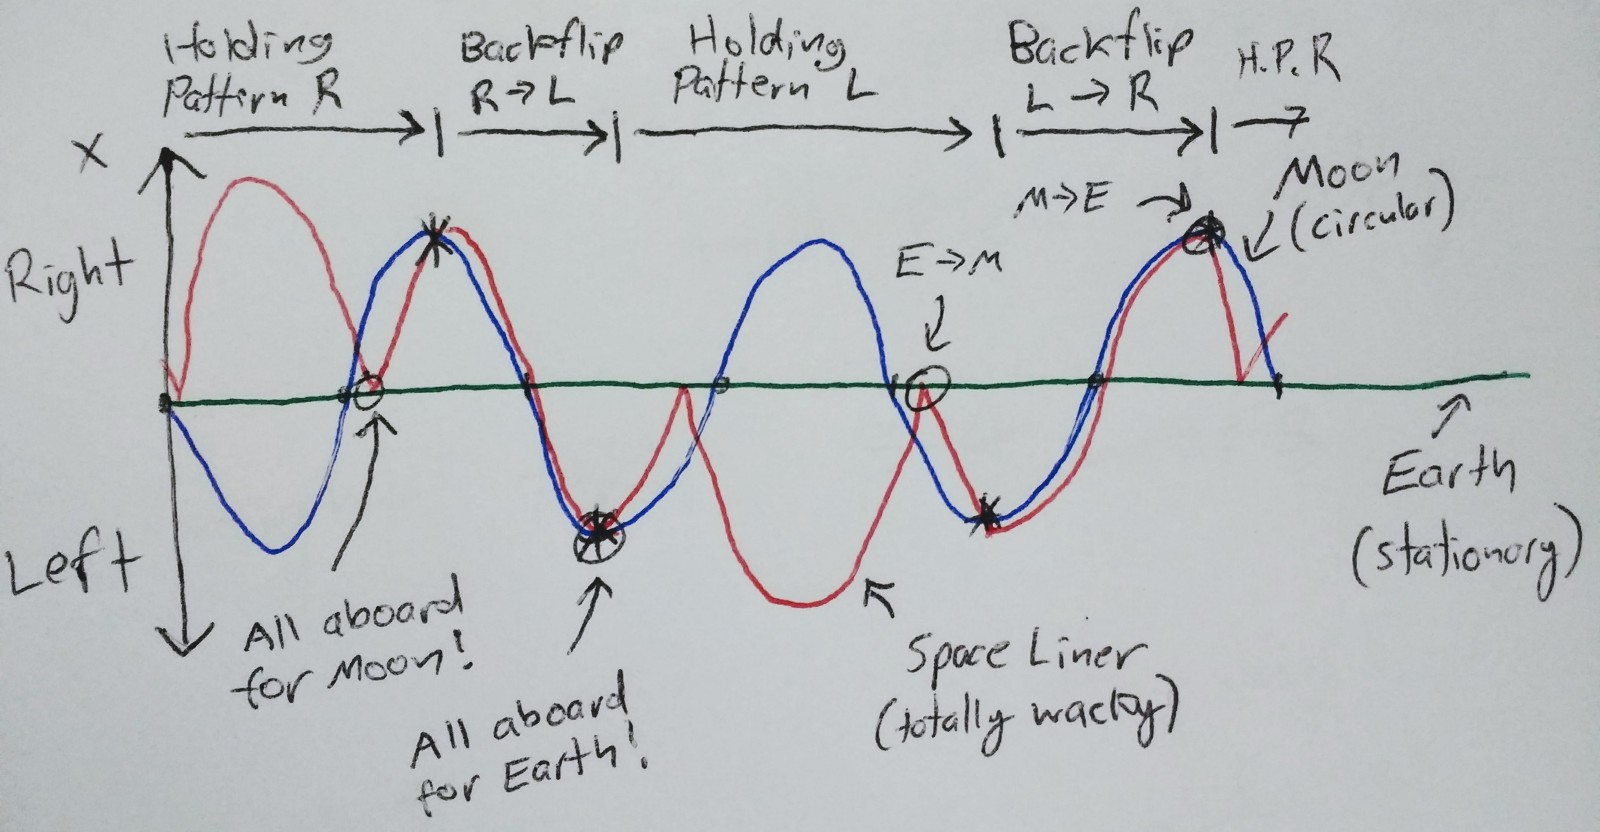 Holding
Pattern R
Backflip
R→L
Holding
Pattern L
Backflip
L → R
H.P.R
X
Right
Left
M→E
Moon
(circular)
E→M
Earth
(stationary)
All aboard
for Moon!
All aboard
for Earth!
Space Liner
(totally wacky)